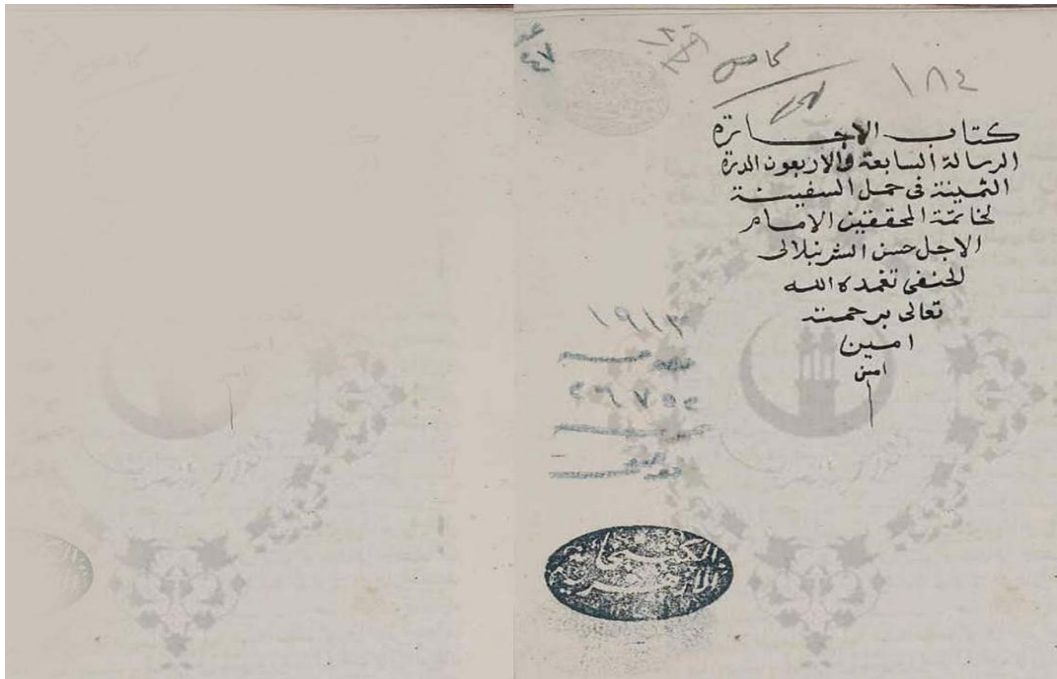 ١٨٤
كتاب الاجازة
الرسالة السابعة والاربعون الدرة
الثمينة فى حمل السفينة
لخاتمة المحققين الامام
الاجل حسن الشرنبلالى
الحنفى تغمده الله
تعالى برحمته
امين
امين
١٩١٣
الكتبخانة
الازهرية